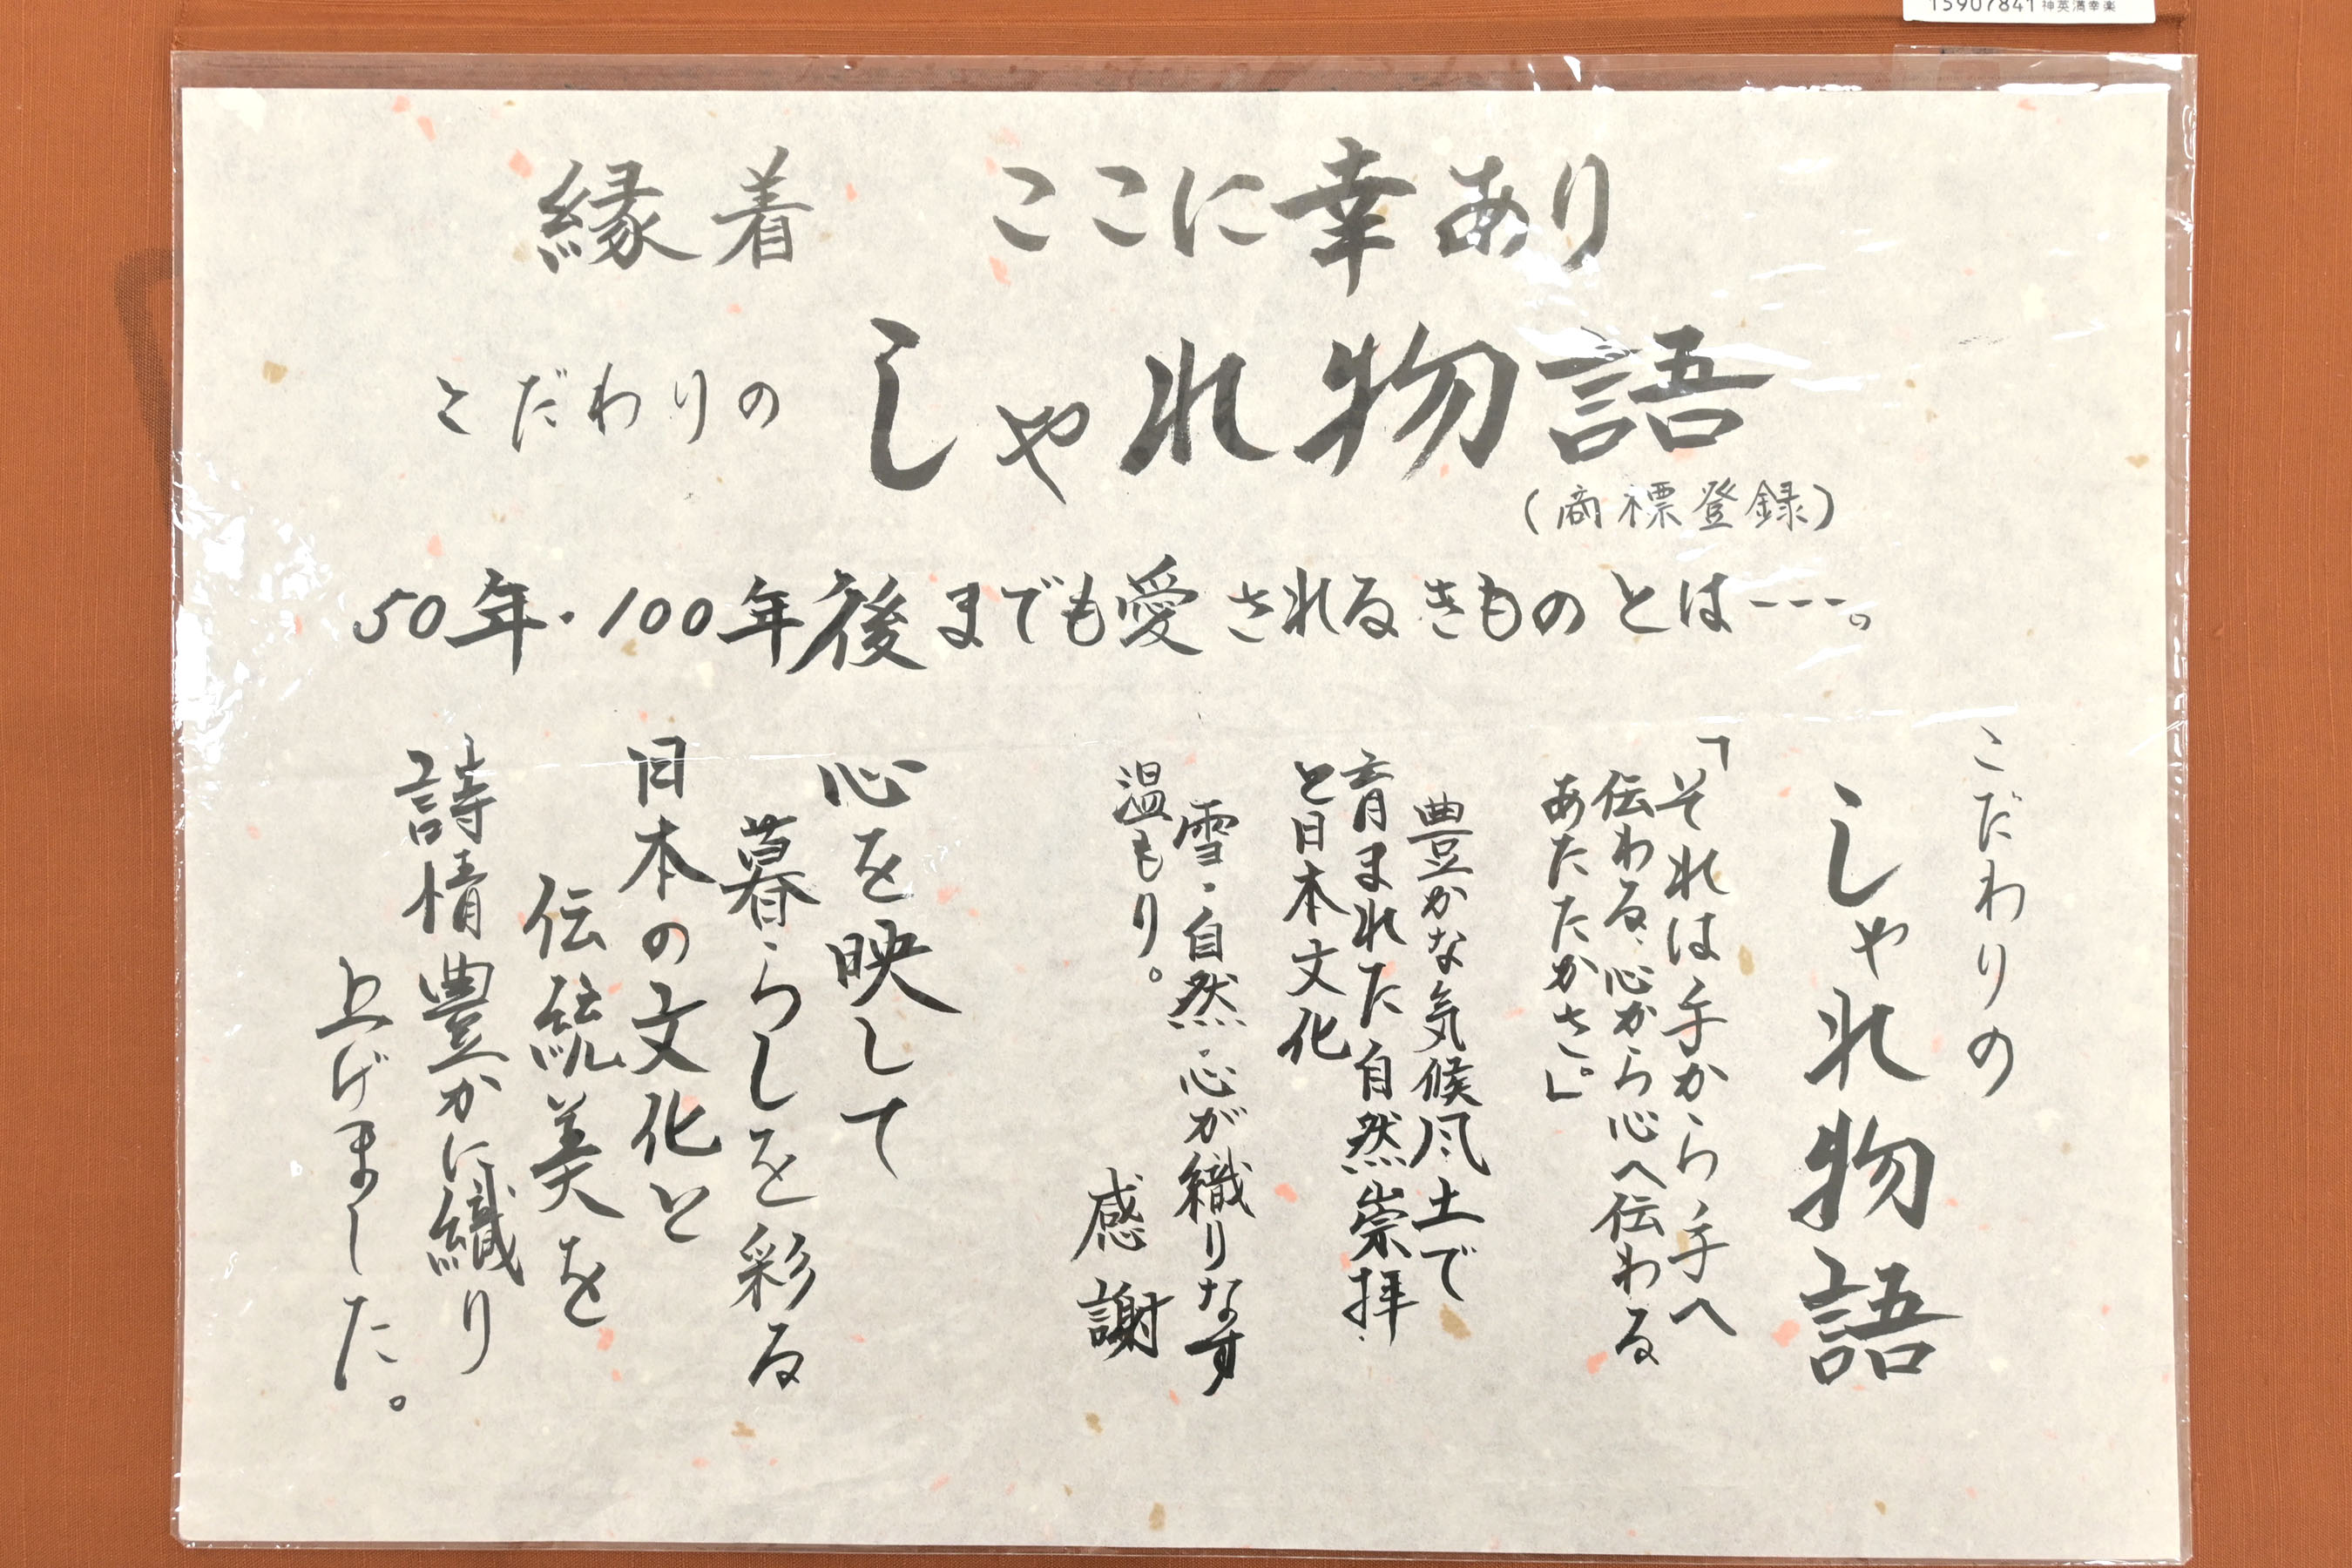 15907841 神英満幸楽
縁着 ここに幸あり
こだわりの しゃれ物語
(商標登録)
50年・100年後までも愛されるきものとは---。
こだわりの
しゃれ物語
「それは手から手へ
伝わる、心から心へ伝わる
あたたかさ。」
豊かな気候風土で
育まれた自然崇拝
と日本文化
雪・自然・心が織りなす
温もり。 感謝
心を映して
暮らしを彩る
日本の文化と
伝統美を
詩情豊かに織り
上げました。